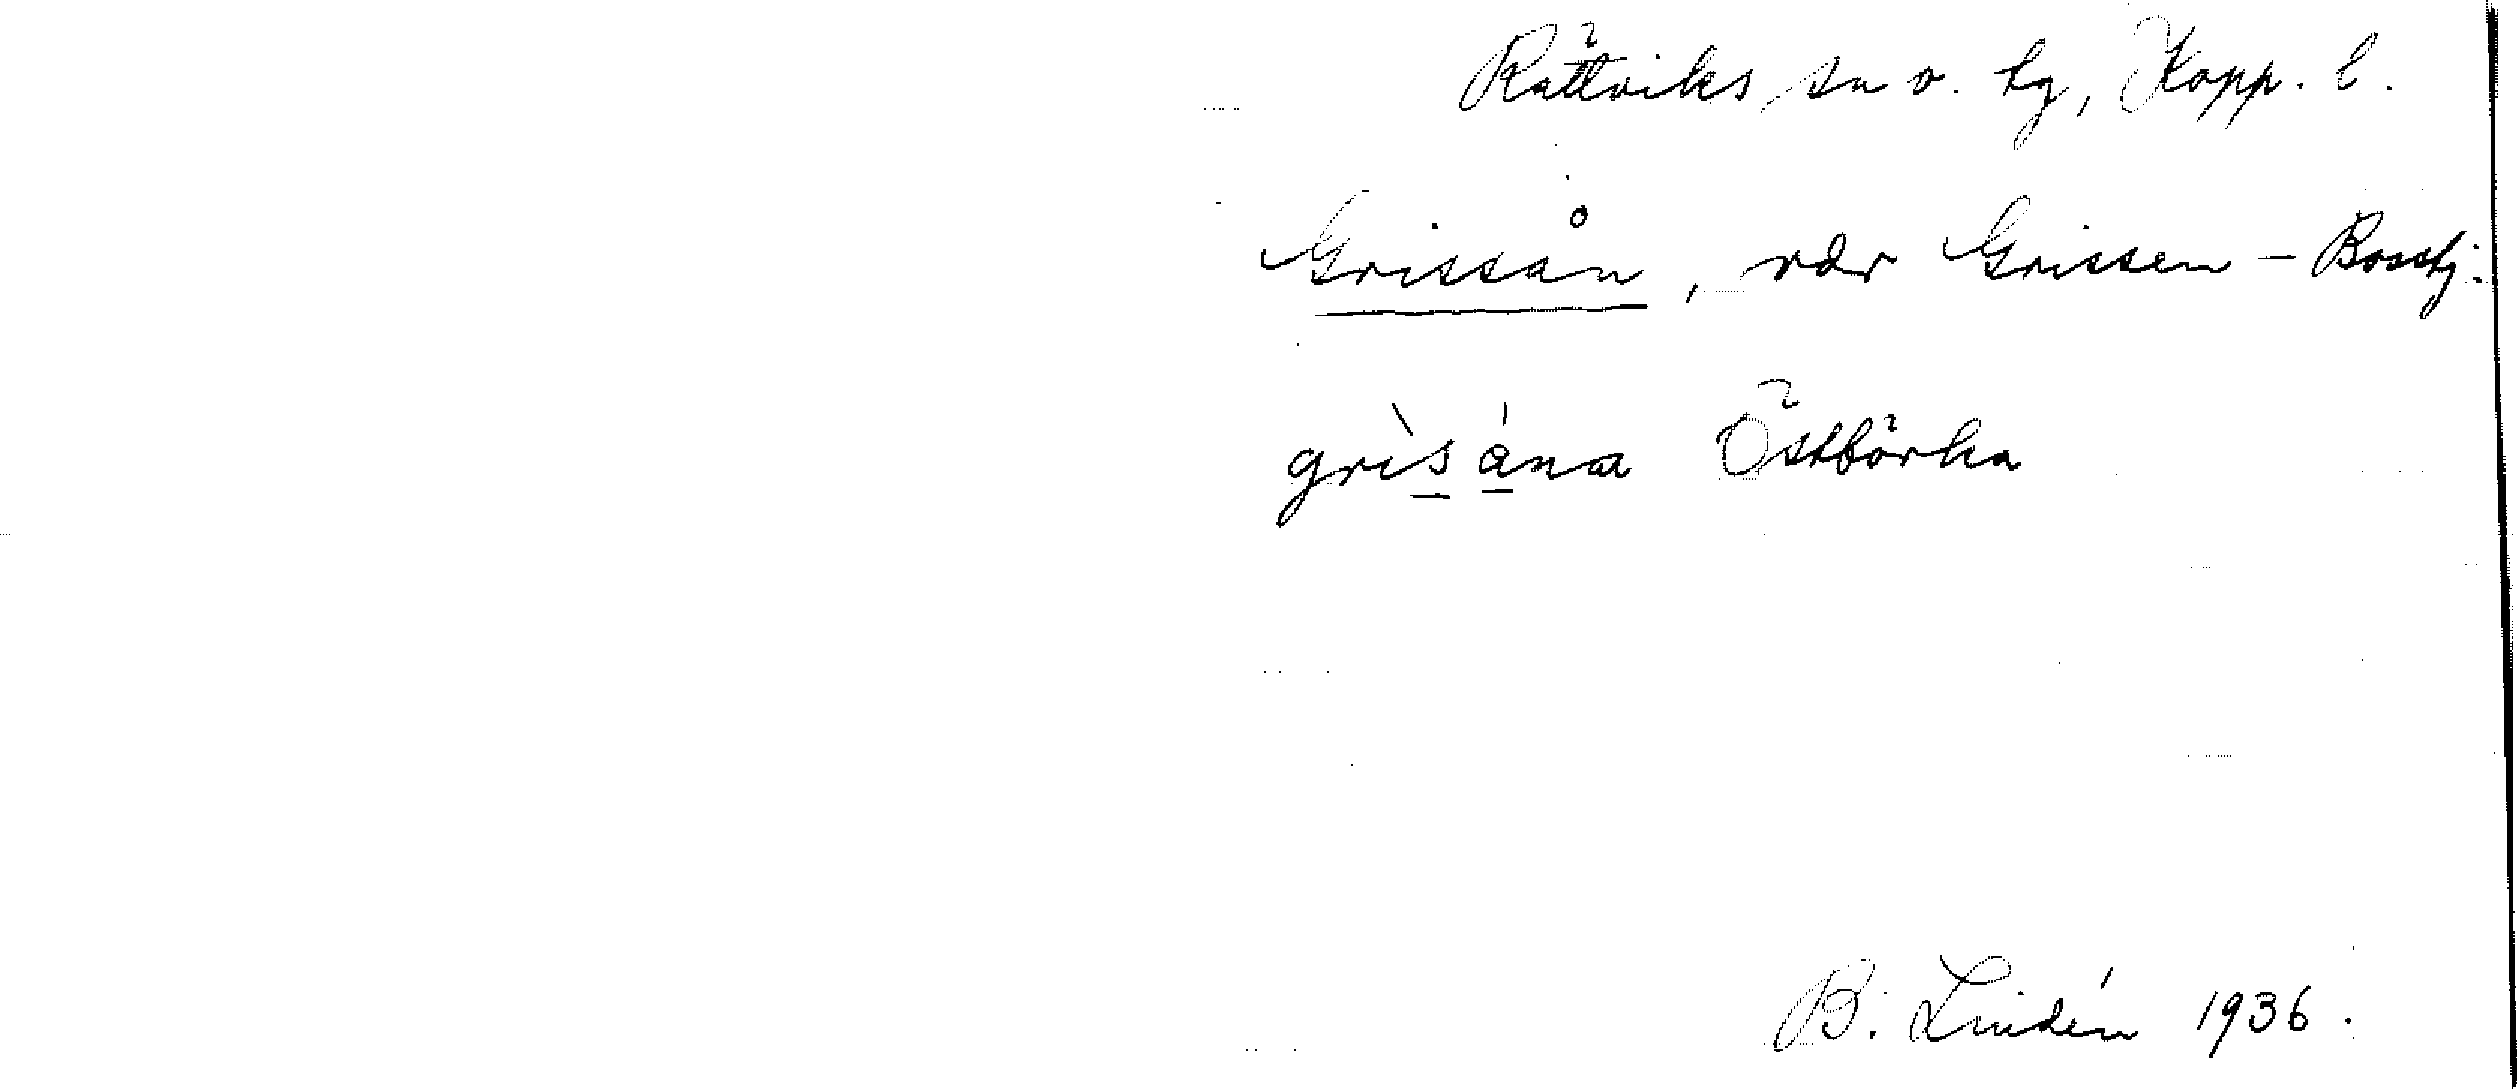 Rättviks sn o. tg, Kopp. l.
Grissån, vdr Grissen – Bosसj:
grı̀s ána Östbörka
B. Lindén 1936.